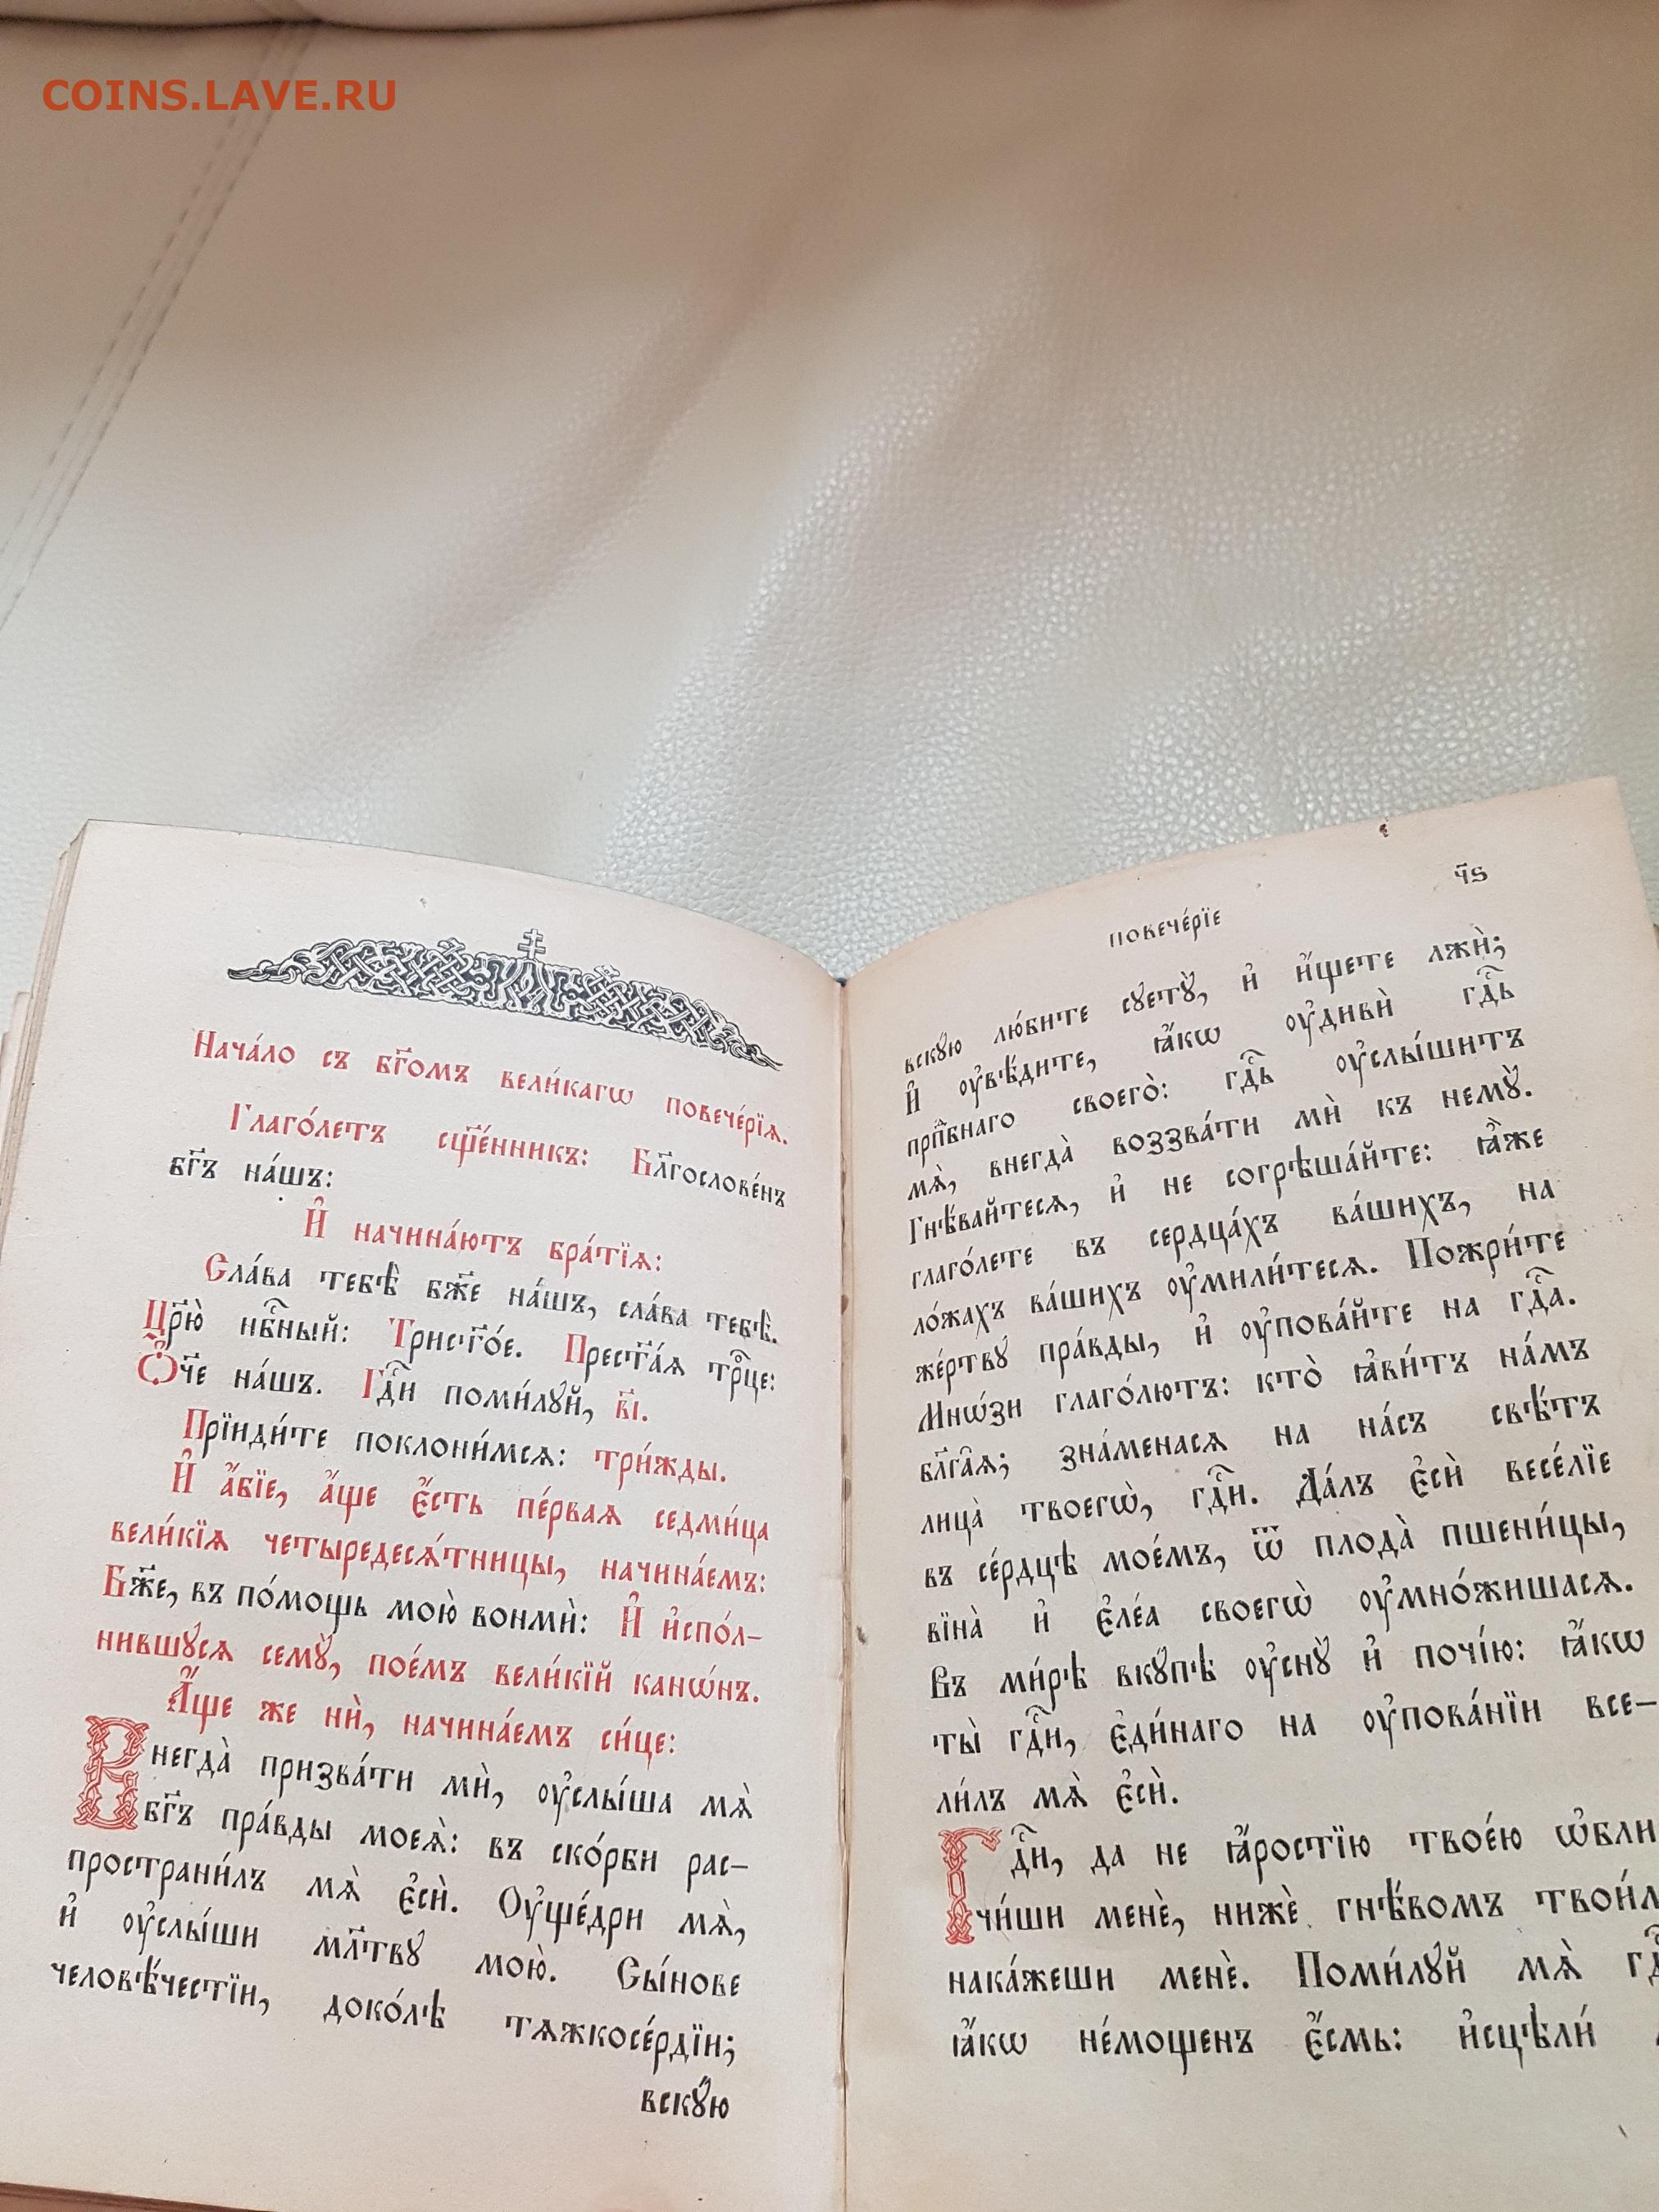 COINS.LAVE.RU
Нача́ло съ бг҃омъ вели́кагѡ повече́рїѧ.
Глаго́летъ сщ҃е́нникъ: Бл҃гослове́нъ
бг҃ъ на́шъ:
И҆ начина́ютъ бра́тїѧ:
Сла́ва тебѣ̀ бж҃е на́шъ, сла́ва тебѣ̀.
Цр҃ю̀ нбⷭ҇ный: Трисг҃о́е. Прест҃а́ѧ трⷪ҇це:
Ѻ҆́ч҃е на́шъ. Гдⷭ҇и поми́лꙋй, в҃і.
Прїиди́те поклони́мсѧ: три́жды.
И҆ а҆́бїе, а҆́ще є҆́сть пе́рваѧ седми́ца
вели́кїѧ четыредесѧ́тницы, начина́емъ:
Бж҃е, въ по́мощь мою̀ вонмѝ: И҆ и҆спо́л-
нившꙋсѧ семꙋ̀, пое́мъ вели́кїй канѡ́нъ.
А҆́ще же нѝ, начина́емъ си́це:
Внегда̀ призва́ти мѝ, ᲂу҆слы́ша мѧ̀
бг҃ъ пра́вды моеѧ̀: въ ско́рби рас-
пространи́лъ мѧ̀ є҆сѝ. Оу҆ще́дри мѧ̀,
и҆ ᲂу҆слы́ши мл҃твꙋ мою̀. Сы́нове
человѣ́честїи, доко́лѣ тѧжкосе́рдїи;
вскꙋ́ю
повече́рїе
ч҃ѕ
вскꙋ́ю лю́бите сꙋетꙋ̀, и҆ и҆́щете лжѝ;
И҆ ᲂу҆вѣ́дите, ꙗ҆́кѡ ᲂу҆дивѝ гдⷭ҇ь
прпⷣбнаго своего̀: гдⷭ҇ь ᲂу҆слы́шитъ
мѧ̀, внегда̀ воззва́ти мѝ къ немꙋ̀.
Гнѣ́вайтесѧ, и҆ не согрѣша́йте: ꙗ҆̀же
глаго́лете въ сердца́хъ ва́шихъ, на
ло́жахъ ва́шихъ ᲂу҆мили́тесѧ. Пожри́те
же́ртвꙋ пра́вды, и҆ ᲂу҆пова́йте на гдⷭ҇а.
Мнѡ́зи глаго́лютъ: кто̀ ꙗ҆ви́тъ на́мъ
бл҃га̑ѧ; зна́менасѧ на на́съ свѣ́тъ
лица̀ твоегѡ̀, гдⷭ҇и. Да́лъ є҆сѝ весе́лїе
въ се́рдцѣ мое́мъ, ѿ плода̀ пшени́цы,
вїна̀ и҆ є҆ле́а своегѡ̀ ᲂу҆мно́жишасѧ.
Въ ми́рѣ вкꙋ́пѣ ᲂу҆снꙋ̀ и҆ почі́ю: ꙗ҆́кѡ
ты̀ гдⷭ҇и, є҆ди́наго на ᲂу҆пова́нїи все-
ли́лъ мѧ̀ є҆сѝ.
Гдⷭ҇и, да не ꙗ҆́ростїю твое́ю ѡ҆бли
чи́ши менѐ, нижѐ гнѣ́вомъ твои́
нака́жеши менѐ. Поми́лꙋй мѧ̀
ꙗ҆́кѡ не́мощенъ є҆́смь: и҆сцѣли́